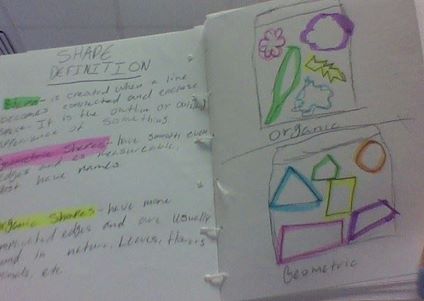 SHAPE
DEFINITION
is created when a line
becomes connected and enclose
It is the outline or
appearance of something
Geometric Shapes - have smooth, even
edges and are measurable,
have names.
organic Shapes - have more
edges and are usually
in nature, leaves, flowers
etc.
organic
Geometric